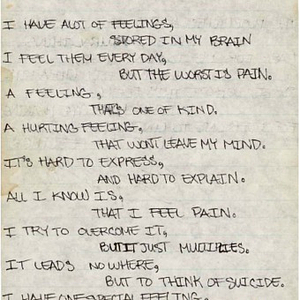 I HAVE ALOT OF FEELINGS,
STORED IN MY BRAIN
I FEEL THEM EVERY DAY,
BUT THE WORST IS PAIN.
A FEELING,
THATS ONE OF KIND.
A HURTING FEELING,
THAT WONT LEAVE MY MIND.
IT'S HARD TO EXPRESS,
AND HARD TO EXPLAIN.
ALL I KNOW IS,
THAT I FEEL PAIN.
I TRY TO OVERCOME IT,
BUT IT JUST MULTIPLIES.
IT LEADS NOWHERE,
BUT TO THINK OF SUICIDE.
I HAVE ONE SPECIAL FEELING.